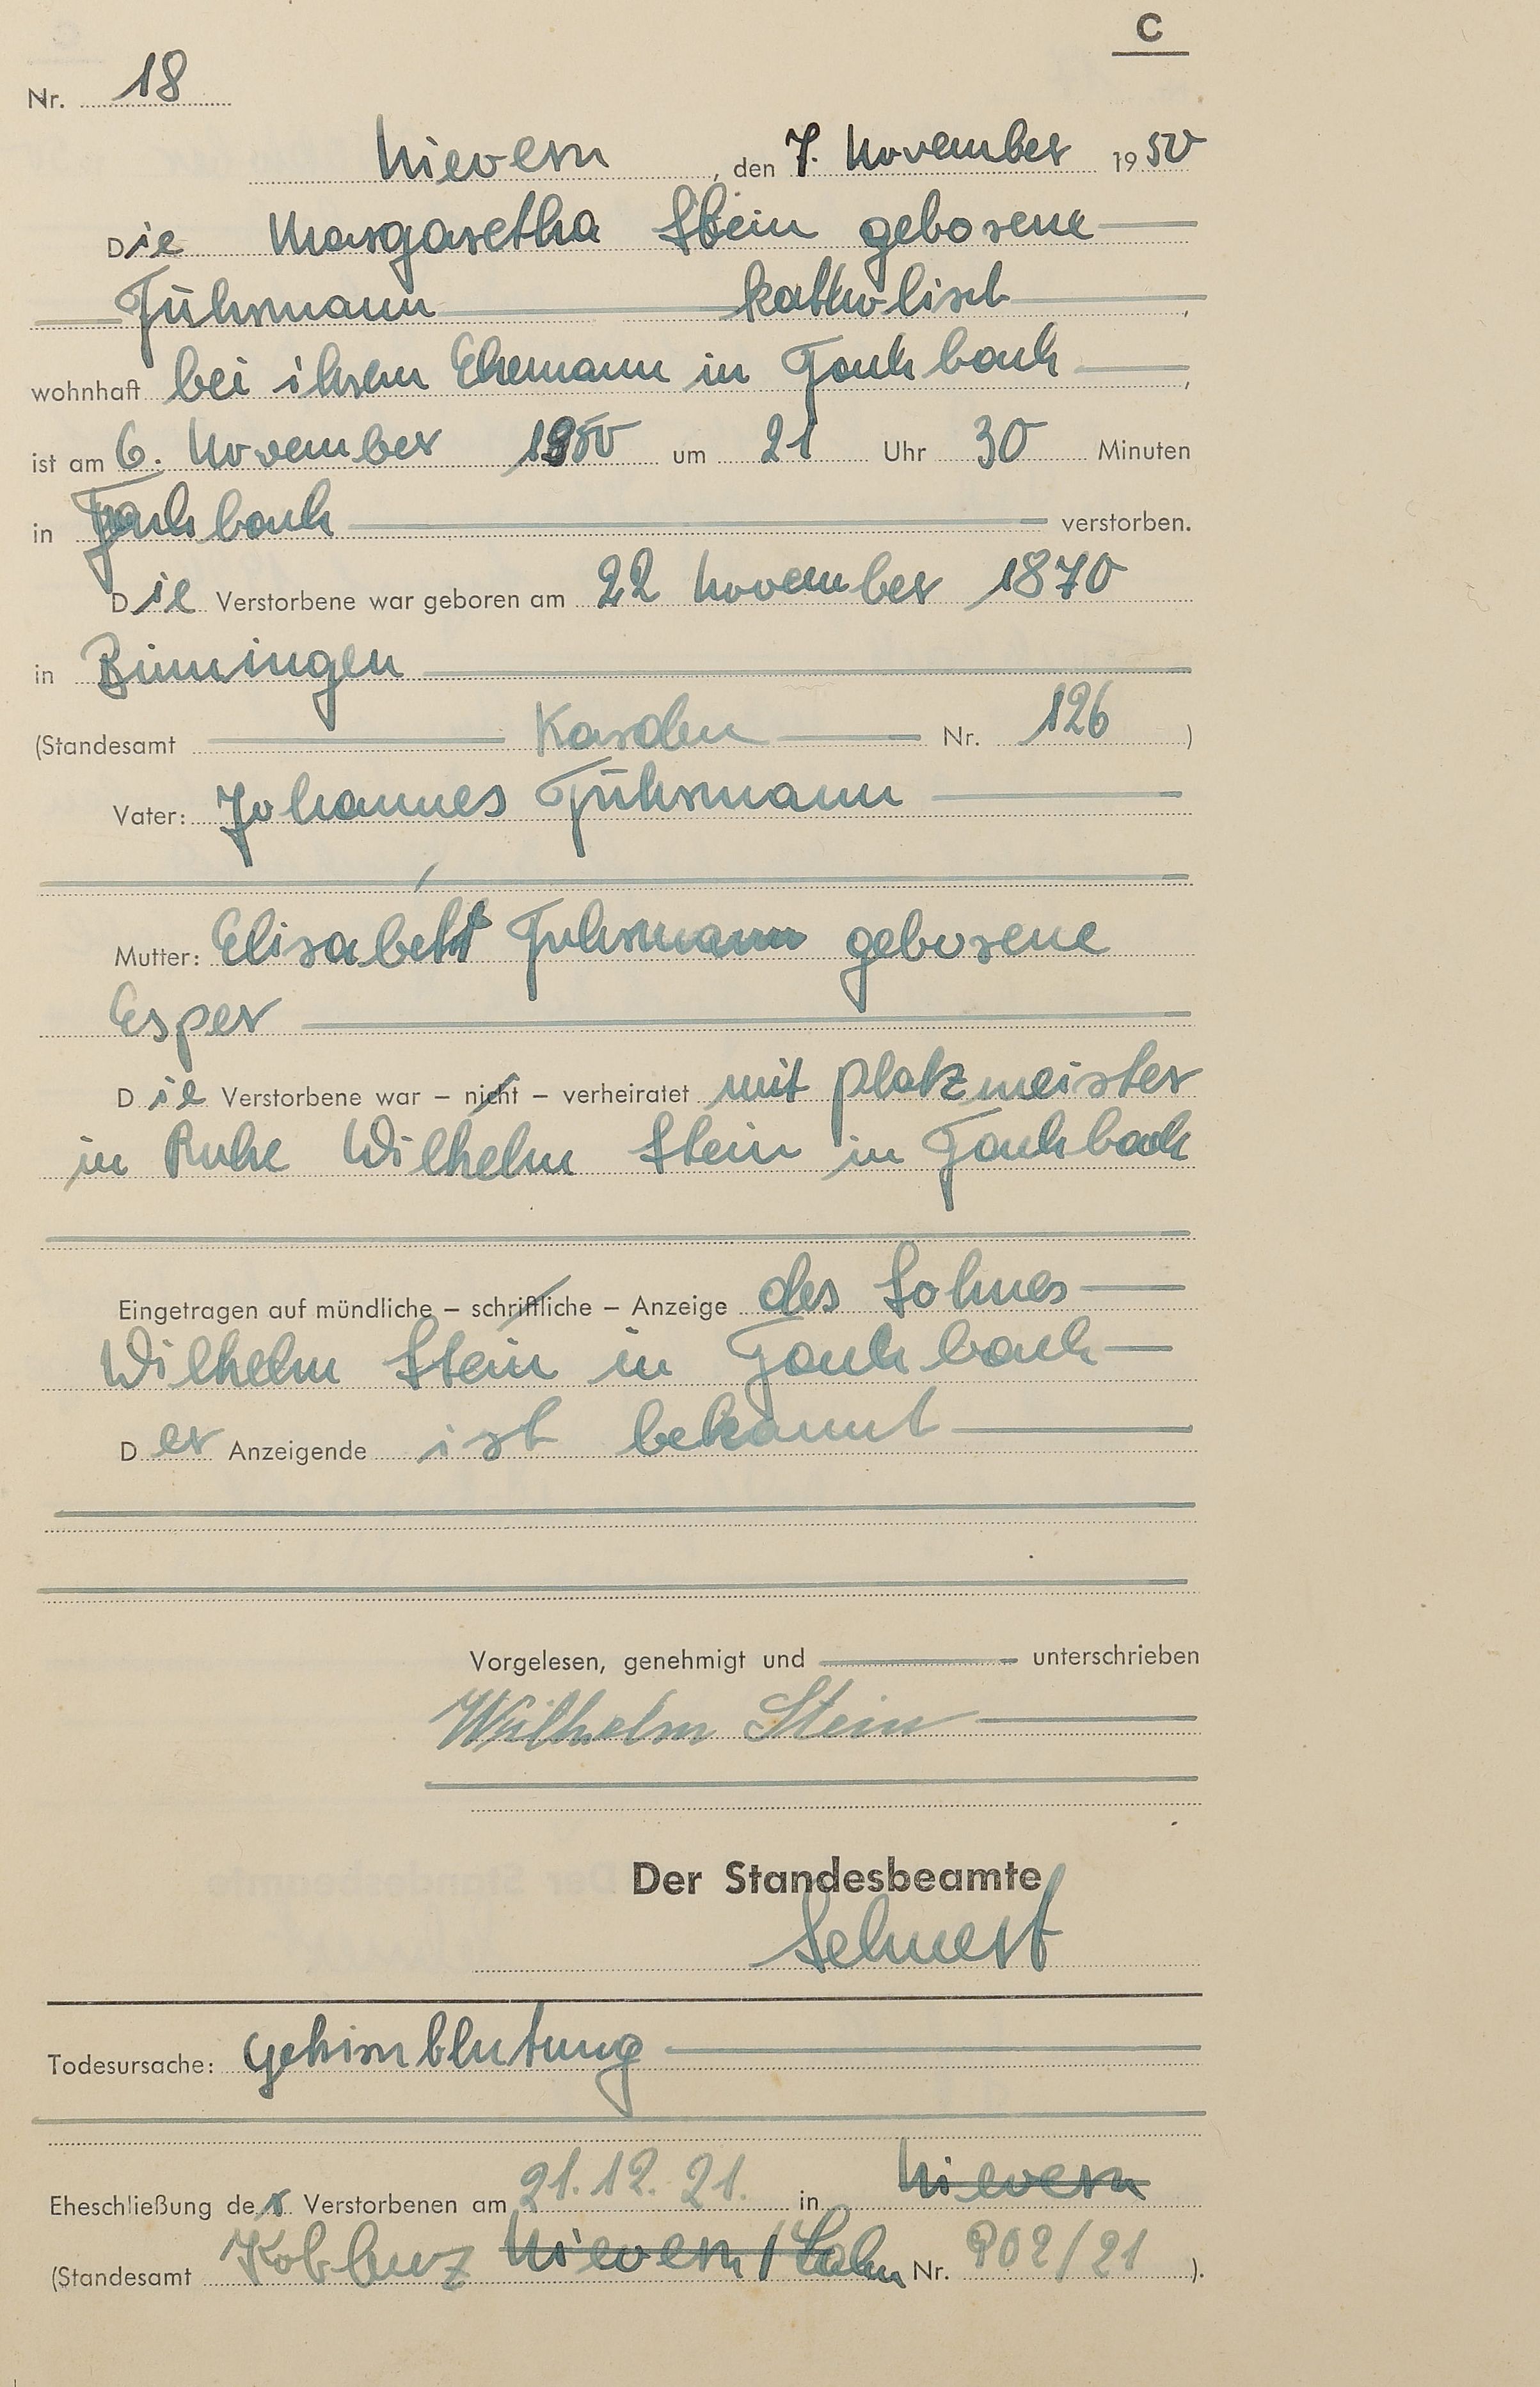 C
Nr. 18
Nievern, den 7. November 1950
Die Margaretha Stein geborene
Fuhrmann katholisch,
wohnhaft bei ihrem Ehemann in Fachbach,
ist am 6. November 1950 um 21 Uhr 30 Minuten
in Fachbach verstorben.
Die Verstorbene war geboren am 22 November 1870
in Binningen
(Standesamt Karden Nr. 126)
Vater: Johannes Fuhrmann
Mutter: Elisabeth Fuhrmann geborene
Esper
Die Verstorbene war – nicht – verheiratet mit Platzmeister
in Ruhe Wilhelm Stein in Fachbach
Eingetragen auf mündliche – schriftliche – Anzeige des Sohnes
Wilhelm Stein in Fachbach
Der Anzeigende ist bekannt
Vorgelesen, genehmigt und unterschrieben
Wilhelm Stein
Der Standesbeamte
Todesursache: Gehirnblutung
Eheschließung der Verstorbenen am 21.12.21. in Nievern
(Standesamt Koblenz Nievern/Lahn Nr. 902/21).